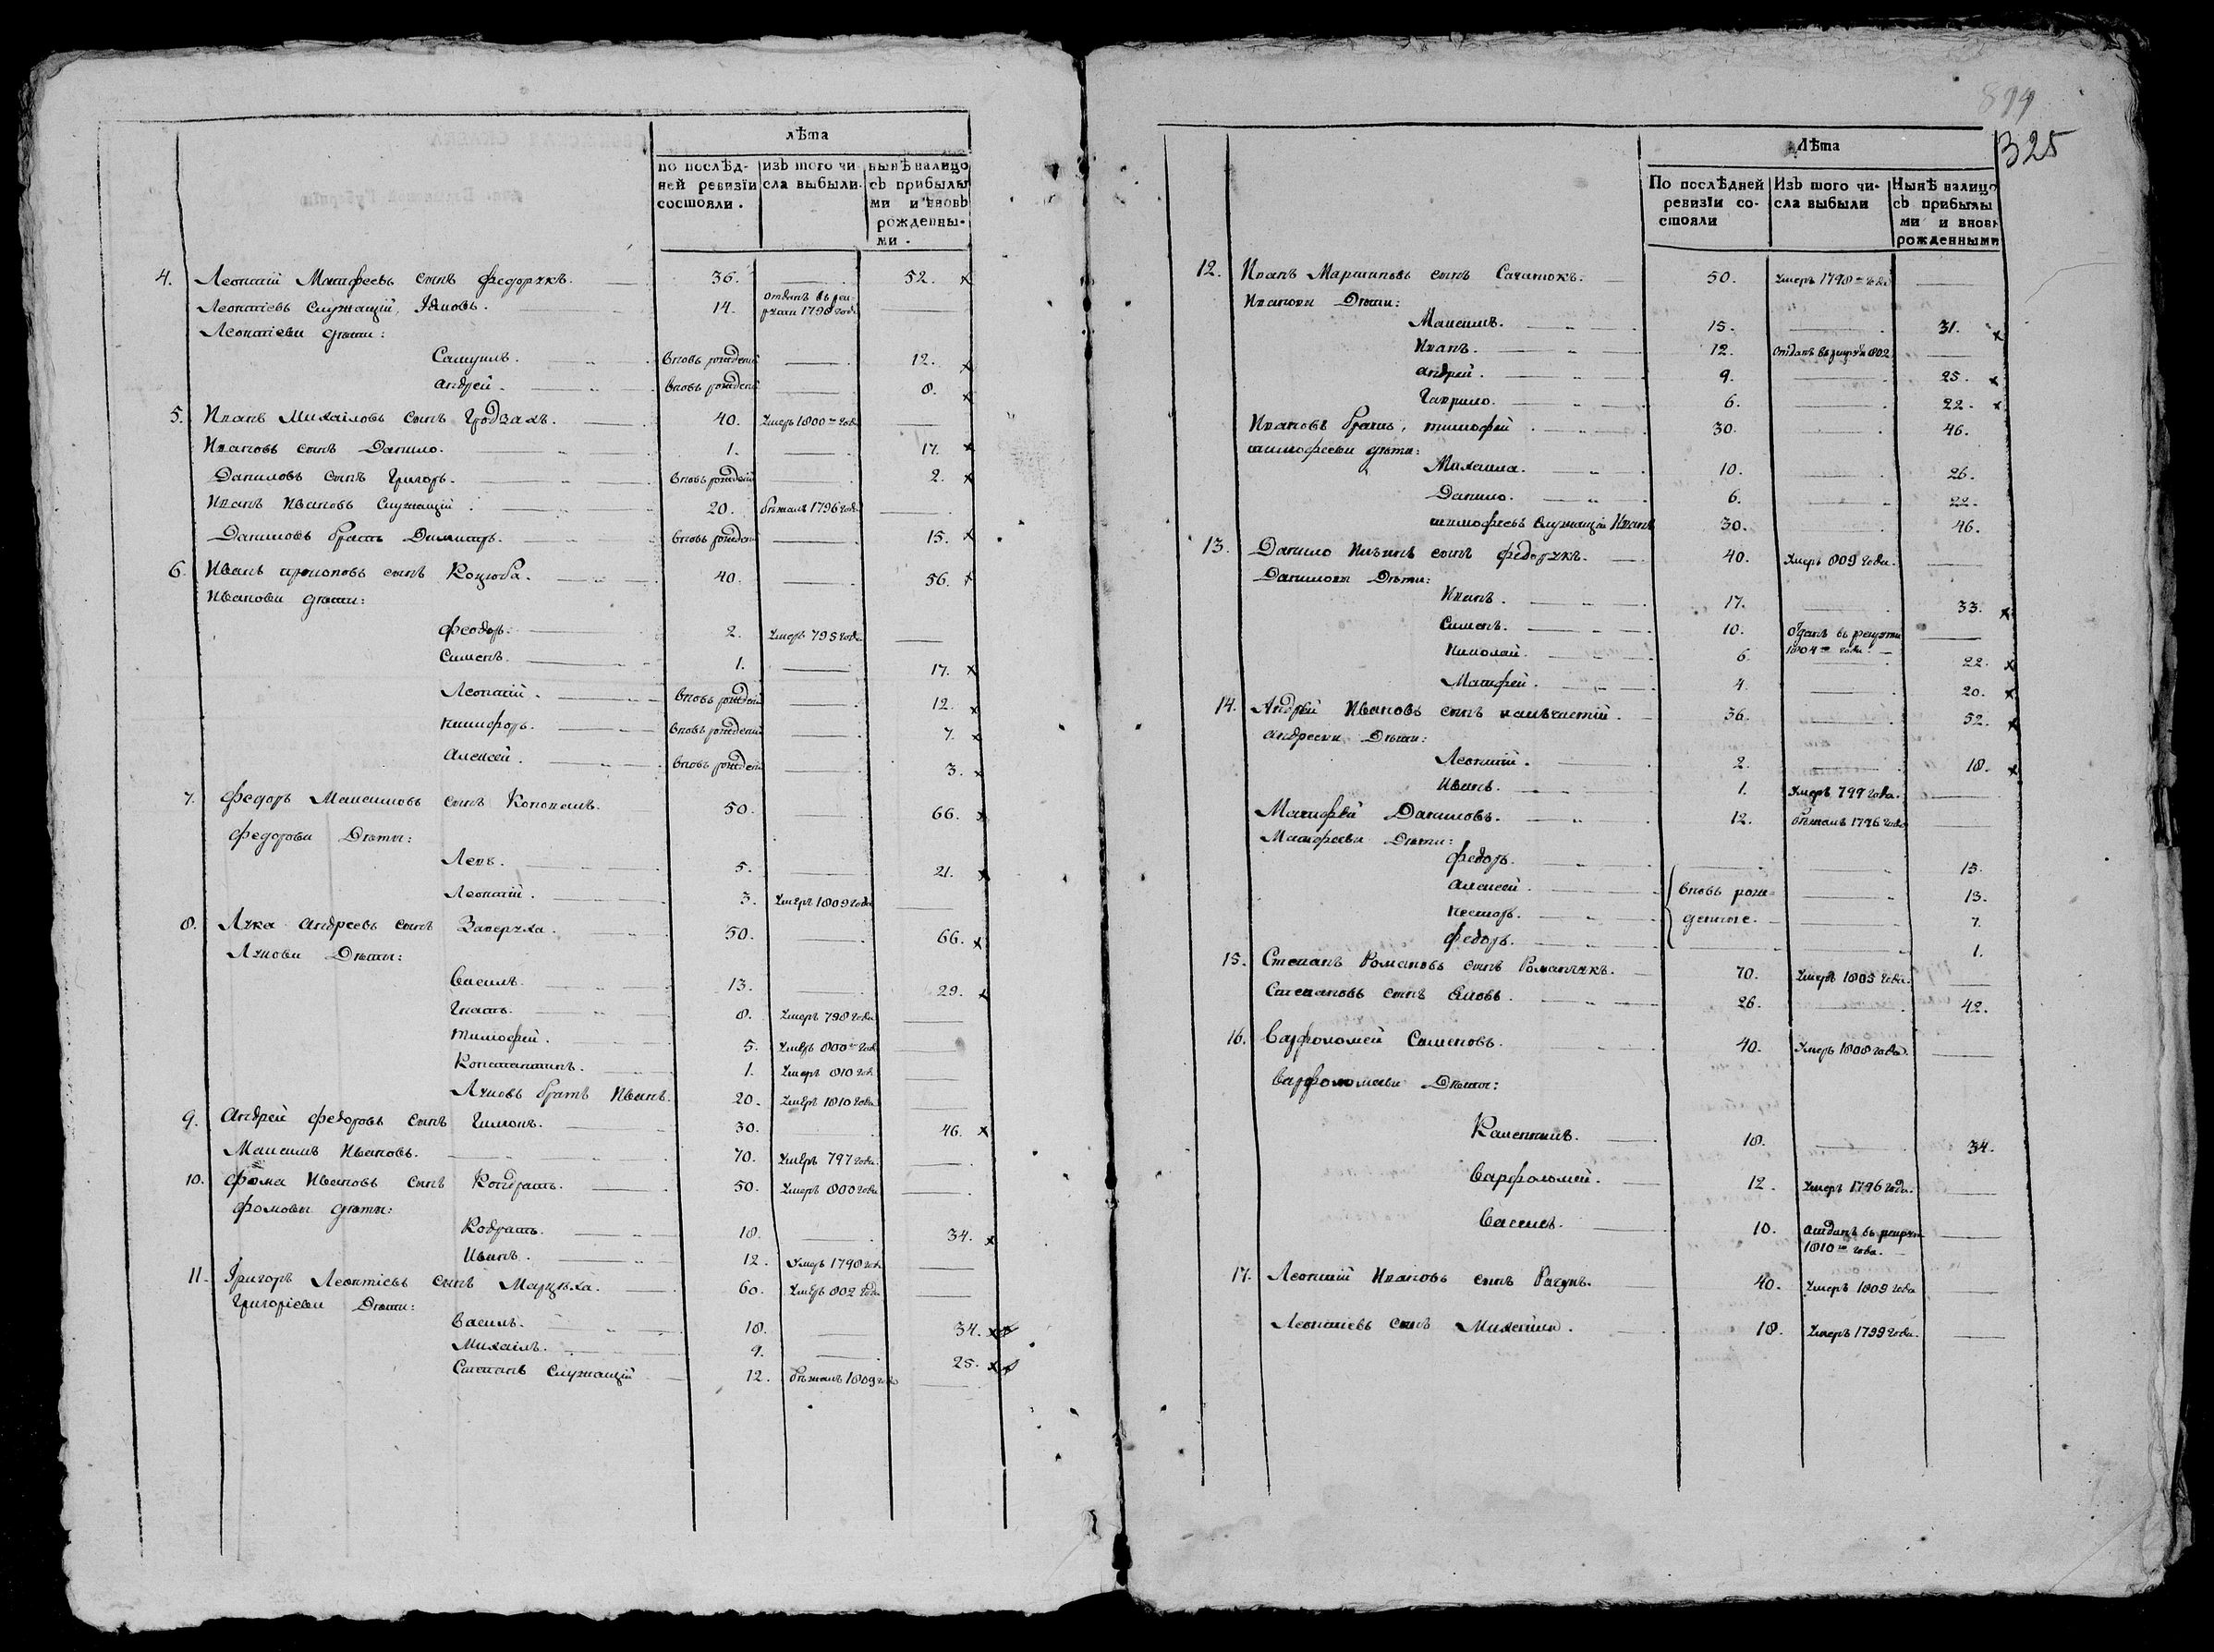 лѣта
по послѣд- изъ того чи- нынѣ налицо
ней ревизїи сла выбыли. съ прибылы
состояли. ми и вновь
рожденны-
ми.
4. Леонтій Матфеевъ сынъ Федорукъ. 36. 52. x
Леонтіевъ служащій, Яковъ. 14. отданъ въ рек-
руты 1798 года
Леонтіевы дѣти:
Самуилъ. вновь рожденій 12. x
андрей. вновь рожденій 8. x
5. Иванъ Михаиловъ сынъ 40. Умеръ 1800го года
Ивановъ сынъ Данило. 1. 17. x
Даниловъ сынъ Григоръ. вновь рожденій 2. x
Иванъ Ивановъ Служащій 20. бѣжалъ 1796 года
Даниловъ братъ Димитръ. вновь рожденій 15. x
6. Иванъ прокоповъ сынъ Коцюба. 40. 56. x
Ивановы дѣти:
Феодоръ. 2. Умеръ 795 года
Сименъ. 1. 17. x
Леонтій. вновь рожденій 12. x
никифоръ. вновь рожденій 7. x
алексей. вновь рожденій 3. x
7. Федоръ Максимовъ сынъ 50. 66. x
Федоровы Дѣти:
Левъ. 5. 21. x
Леонтій. 3. Умеръ 1809 года
8. Лука андреевъ сынъ Заверуха. 50. 66. x
Луковы Дѣти:
Василъ. 13. 29. x
Гнатъ. 8. Умеръ 798 года
тимофей. 5. Умеръ 800го года
Константинъ. 1. Умеръ 810 года
Луковъ братъ Иванъ. 20. Умеръ 1810 года
9. Андрей Федоровъ сынъ 30. 46. x
Максимъ Ивановъ. 70. Умеръ 797 года
10. Фома Ивановъ сынъ Кондратъ. 50. Умеръ 800 года
Фомовы дѣти:
Кодратъ. 18. 34. x
Иванъ. 12. Умеръ 1798 года
11. Григоръ Леонтіевъ сынъ 60. Умеръ 802 года
Григоріевы Дѣти:
Василъ. 18. 34. x
Михаилъ. 9. 25. x
Степанъ Служащій 12. бѣжалъ 1809 года
894
325
Лѣта
По послѣдней Изъ того чи- Нынѣ налицо
ревизїи со- сла выбыли съ прибылы
стояли ми и вновь
рожденными
12. Иванъ Мартиновъ сынъ 50. Умеръ 1798го года
Ивановы Дѣти:
Максимъ. 15. 31. x
Иванъ. 12. Отданъ въ рекруты 802
андрей. 9. 25. x
Гаврило. 6. 22. x
Ивановъ братъ, тимофей 30. 46.
тимофеевы дѣти:
Михаила. 10. 26.
Данило. 6. 22.
тимофеевъ служащій Иванъ 30. 46.
13. Данило сынъ федорукъ. 40. Умеръ 809 года.
Даниловы Дѣти:
Иванъ. 17. 33. x
Сименъ. 10. Отданъ въ рекруты
1804го года.
Николай. 6. 22. x
Матфей. 4. 20. x
14. Андрей Ивановъ сынъ 36. 52. x
андреевы Дѣти:
Леонтій. 2. 18. x
Иванъ. 1. Умеръ 797 года.
Матфей Даниловъ. 12. бѣжалъ 1796 года
Матфеевы Дѣти:
федоръ. 15.
алексей. вновь рож- 13.
несторъ. денные. 7.
федоръ. 1.
15. Степанъ Романовъ сынъ Романчукъ. 70. Умеръ 1805 года.
Степановъ сынъ Яковъ. 26. 42.
16. Варфоломей Семеновъ. 40. Умеръ 1808 года.
Варфоломеевы Дѣти:
18. 34.
Варфоломей. 12. Умеръ 1796 года.
Василъ. 10. отданъ въ рекруты
1810го года.
17. Леонтій Ивановъ сынъ 40. Умеръ 1809 года
Леонтіевъ сынъ Михайло. 18. Умеръ 1799 года.